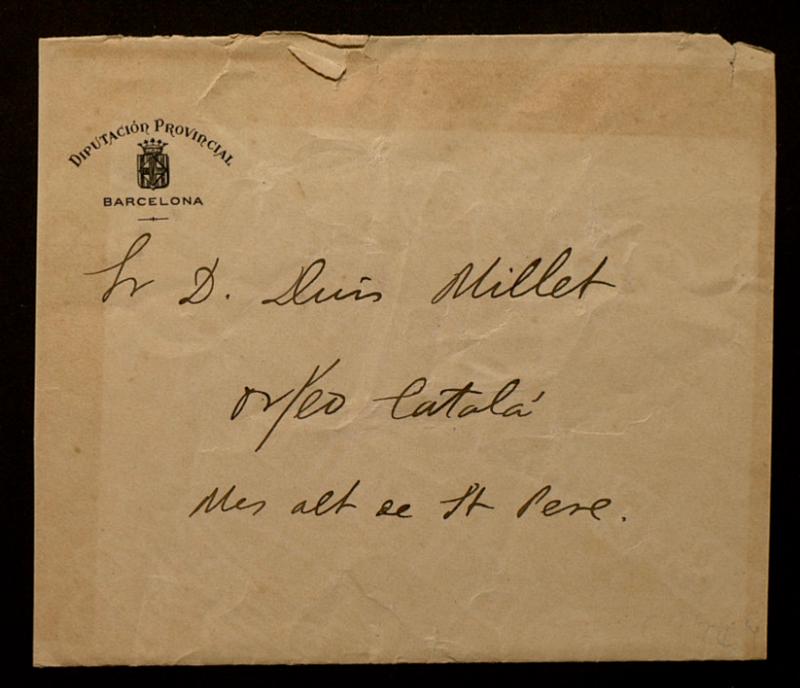 DIPUTACIÓN PROVINCIAL
BARCELONA
Sr D. Lluis Millet
Orfeo Catalá
Mes alt de St Pere.